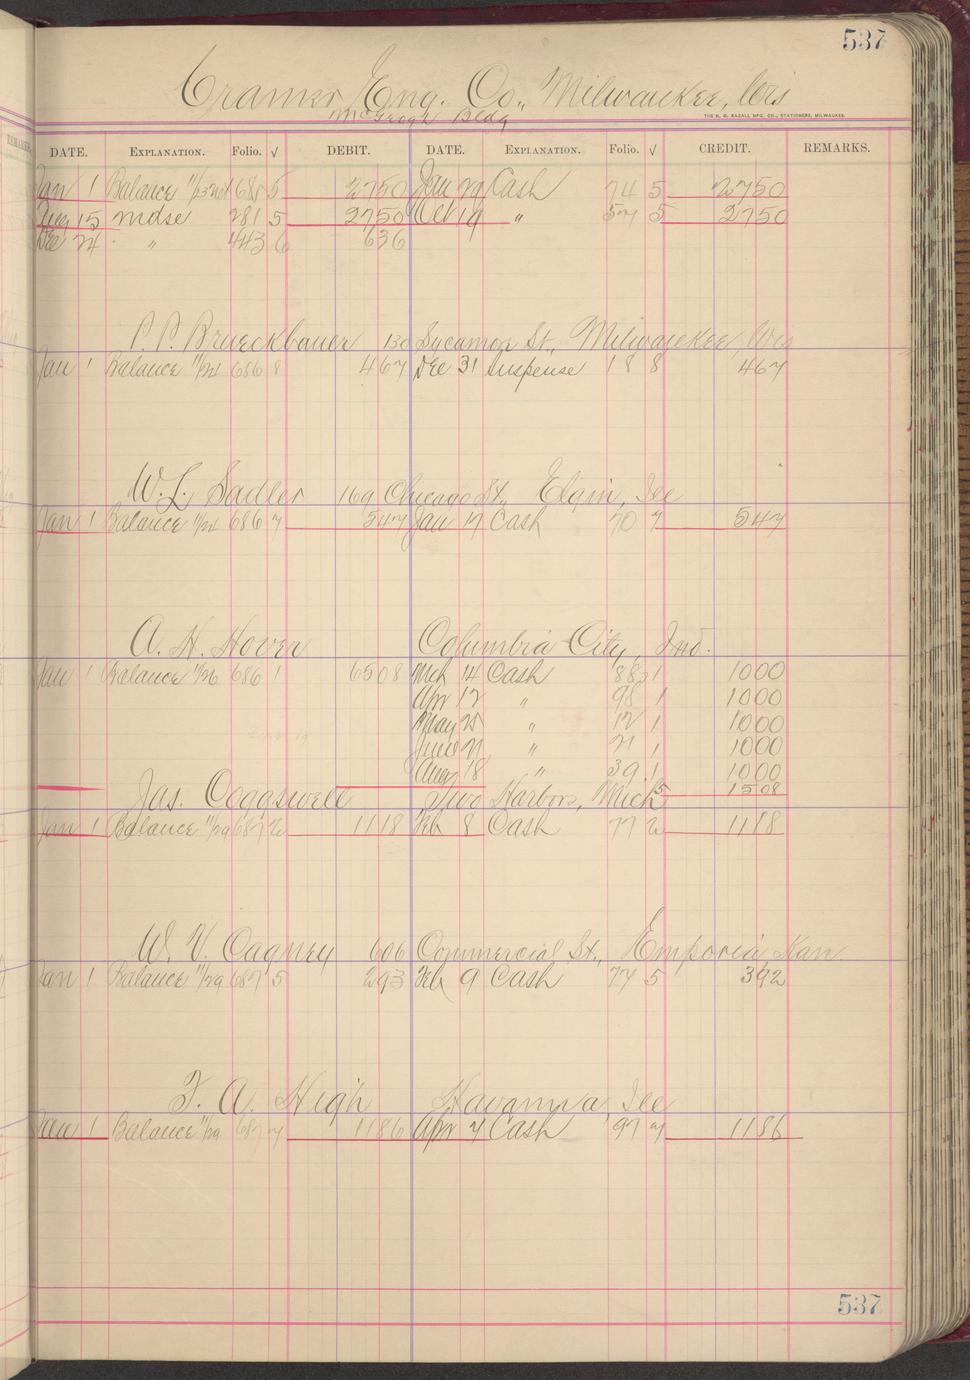 537
Cramer Eng. Co., Milwaukee, Wis
McGeogh Bldg
THE H. G. RAZALL MFG. CO., STATIONERS, MILWAUKEE.
DATE. EXPLANATION. Folio. √ DEBIT. DATE. EXPLANATION. Folio. √ CREDIT. REMARKS.
Jan 1 Balance 685 5 2750 Jan 29 Cash 74 5 2750
Aug 15 mdse 281 5 2750 Oct 19 " 57 5 2750
Dec 24 " 443 6 636
P. P. Brueckbauer 130 Sycamore St., Milwaukee, Wis
Jan 1 Balance 11/24 686 8 467 Dec 31 Suspense 18 8 467
W. L. Sadler 169 Chicago St., Elgin, Ill
Jan 1 Balance 11/24 686 7 547 Jan 17 Cash 70 7 547
A. H. Hover Columbia City, Ind.
Jan 1 Balance 11/26 686 1 6508 Mch 14 Cash 88 1 1000
Apr 12 " 98 1 1000
May 25 " 12 1 1000
June 21 " 21 1 1000
Aug 18 " 39 1 1000
5 1508
Jas. Coggswell Two Harbors, Mich
Jan 1 Balance 11/29 687 2 1118 Feb 8 Cash 77 2 1118
W. V. Cagney 606 Commercial St., Emporia Kan.
Jan 1 Balance 11/29 687 5 293 Feb 9 Cash 77 5 392
F. A. High Havanna, Ill
Jan 1 Balance 11/29 687 7 1186 Apr 7 Cash 97 7 1186
537